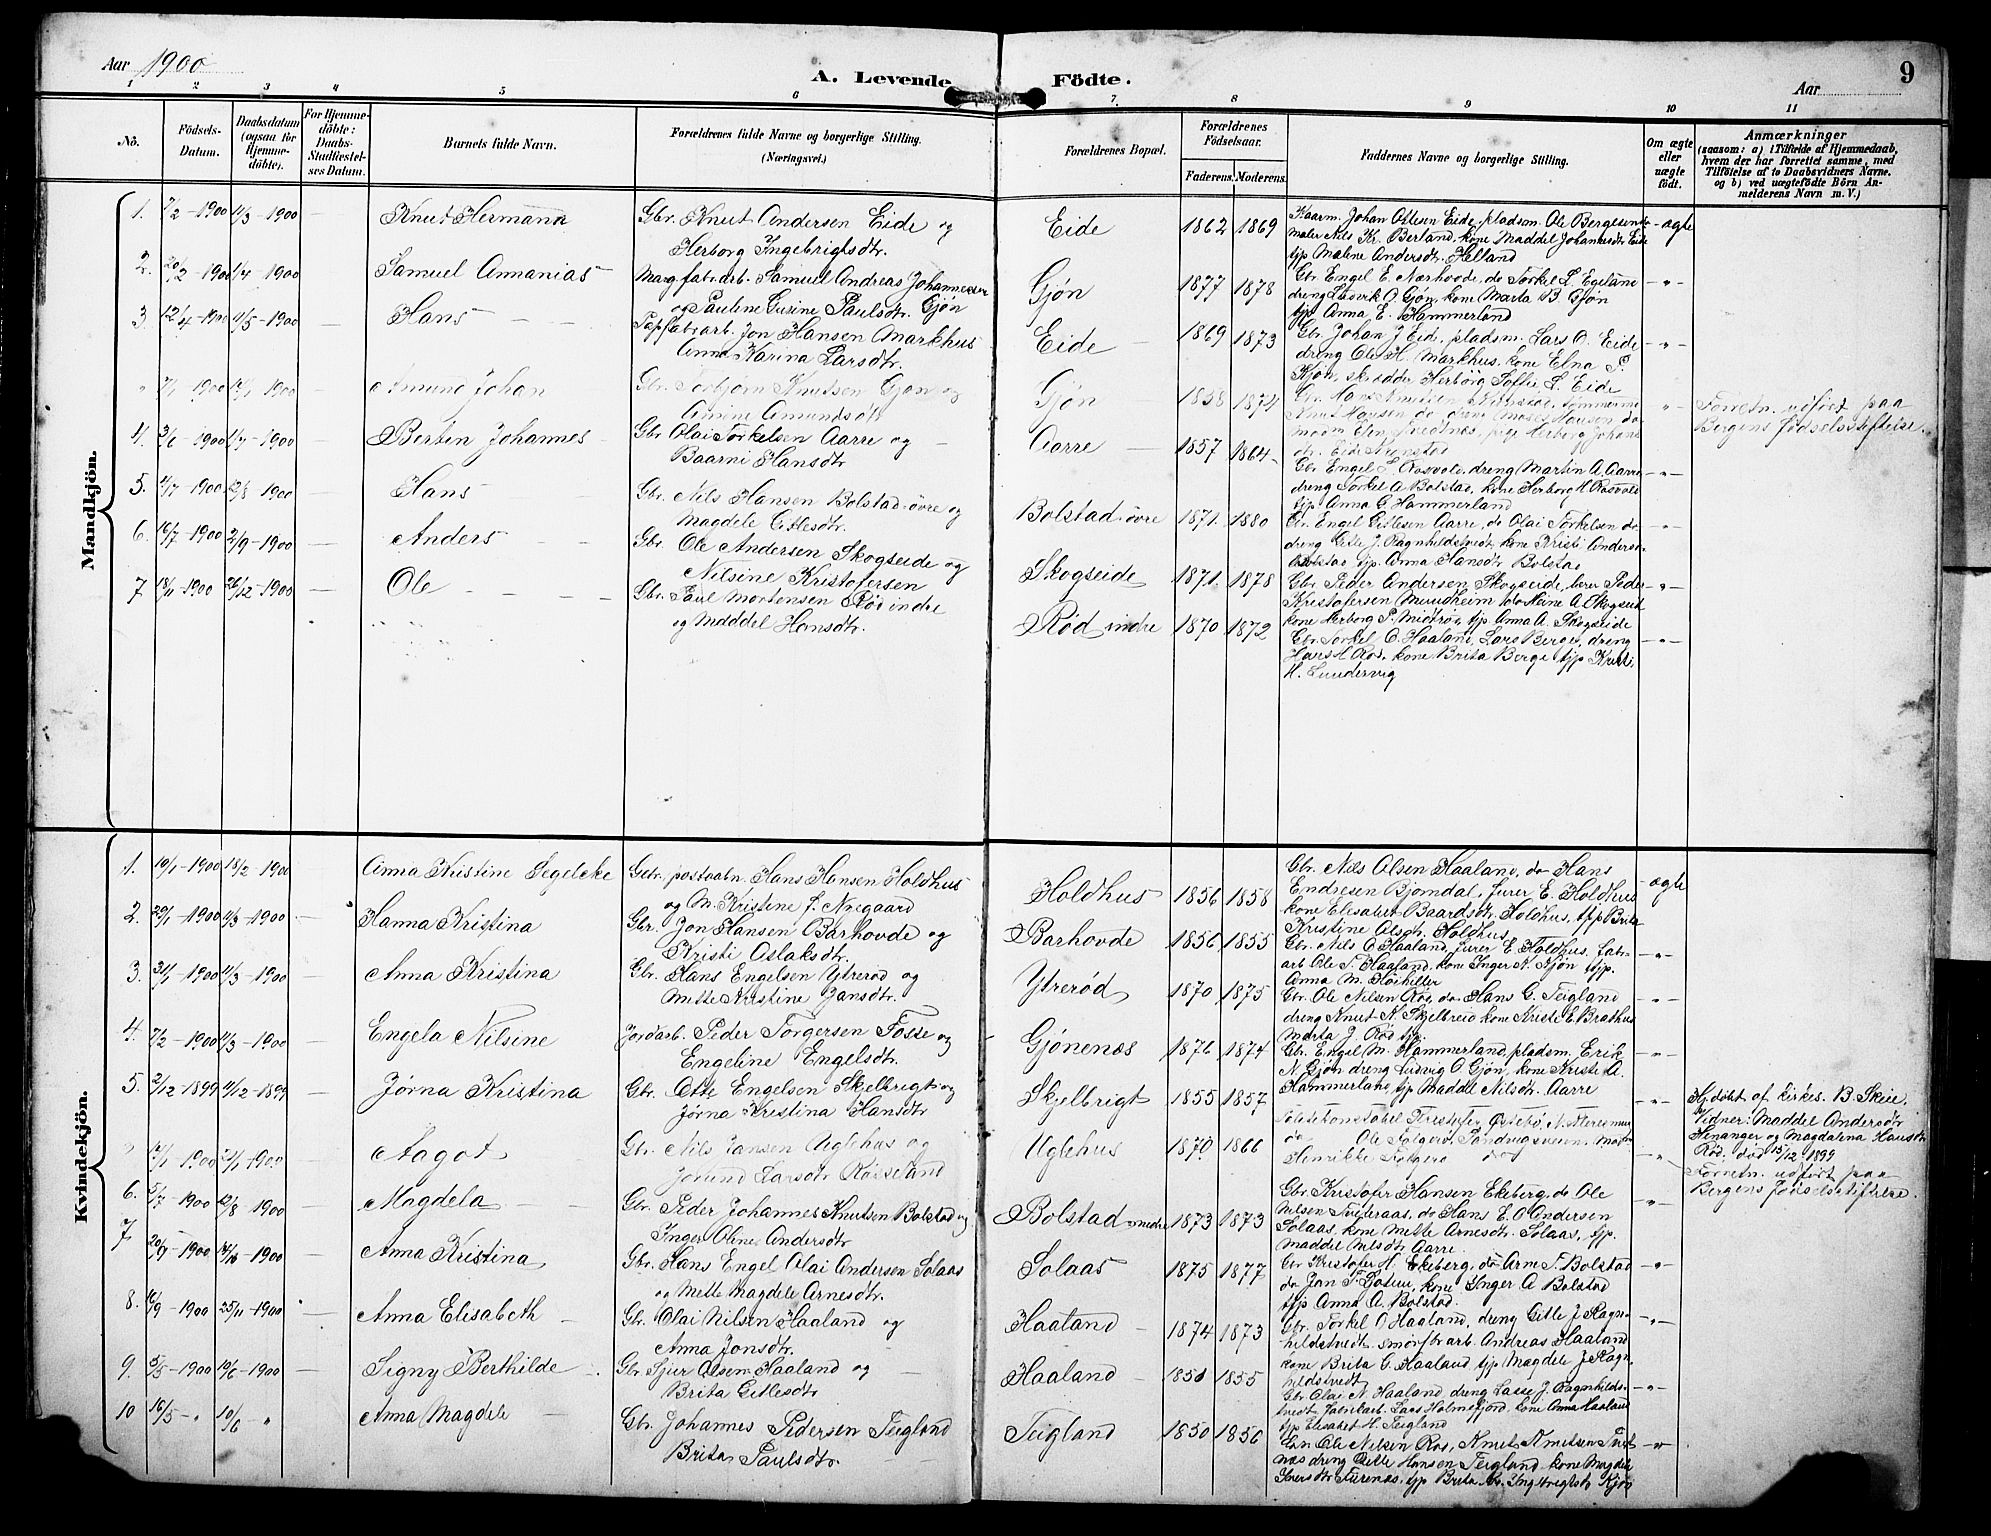 Aar 1900
A. Levende Födte.
Aar
9
1 2 3 4 5 6 7 8 9 10 11
No.
Födsels-Datum.
Daabsdatum (ogsaa for Hjemmedöbte).
For Hjemmedöbte: Daabs-Stadfæstelses Datum.
Barnets fulde Navn.
Forældrenes fulde Navne og borgerlige Stilling. (Næringsvei.)
Forældrenes Bopæl.
Forældrenes Födselsaar.
Faderens. Moderens.
Faddernes Navne og borgerlige Stilling.
Om ægte eller uægte födt.
Anmærkninger
(saasom: a) i Tilfælde af Hjemmedaab, hvem der har forrettet samme, med Tilföielse af to Daabsvidners Navne. og b) ved uægtefödte Börn Anmelderens Navn m. V.)
Mandkjön.
1. 7/2-1900 1/3-1900 Knut Hermann
Gbr. Knut Andersen Eide og
Herborg Ingebrigtsdtr.
Eide 1862 1869
Johan Ottesen Eide, pladsm. Ole Bergesen
maler Nils Kr. Berland, kone Maddel Johannesdtr Eide
tjp Maline Andersdtr. Helland
ægte
2. 20/2-1900 1/4-1900 Samuel Annanias
Margfabr.arb. Samuel Andreas Johannesen
og Pauline Gurine Paulsdtr. Gjøn
Gjøn 1877 1878
Gbr Engel E. Nærhovde, do Torkel L. Egeland
dreng Ludvik O. Gjøn, kone Marta B. Gjøn
tjp Anna E. Hammerland
3 12/4-1900 1/5-1900 Hans
Papfabr.arb. Jon Hansen Markhus
Anna Karina Larsdtr.
Eide 1869 1873
Gbr Johan J Eid, pladsm. Lars O. Eide
dreng Ole H. Markhus, kone Elna P.
Kjøn, skrædder Herborg Sofie L. Eide
" 7/1 1900 Amund Johan
Gbr. Torbjørn Knutsen Gjøn og
Amine Amundsdtr
Gjøn 1858 1874
Forretn. udført paa
Bergens fødselsstiftelse.
4. 3/6-1900 1/7-1900 Berten Johannes
Gbr. Olai Torkelsen Aarre og
Baarni Hansdtr
Aarre 1857 1864
Gbr Engel L. Rosvold, dreng Martin A. Aarre
dreng Torkel A Bolstad, kone Herborg H. Rosvold
tjp Anna G. Hammerland
5. 4/7-1900 12/8-1900 Hans
Gbr. Nils Hansen Bolstad øvre og
Magdele Gitlesdtr.
Bolstad øvre 1871. 1880
Gbr. Engel Gitlesen Aarre, do Olai Torkelsen do
dreng Gitle J. Ragnhildstvedt, kone Kristi Andersd.
Bolstad tjp. Anna Hansdtr Bolstad
6. 16/7-1900 2/9-1900 Anders
Gbr. Ole Andersen Skogseide og
Nilsine Kristofersen
Skogseide 1871. 1878
Gbr Peder Andersen Skogseide, lærer Peder
Kristofersen
kone Herborg P. Midtrø, tjp Anna A. Skogseide
7 18/11-1900 26/12-1900 Ole
Gbr. Paul Mortensen Rød indre
og Maddel Hansdtr.
Rød indre 1870 1872
Gbr. Torkel O. Haaland, Lars Berge, dreng
Hans H. Rød, kone Brita Berge tjp Kristi
H. Lundervig
Kvindekjön.
1. 10/1-1900 18/2-1900 Anna Kristine Segelcke
Gbr. postaabn. Hans Hansen Holdhus
og M. Kristine f. Nygaard
Holdhus 1856 1858
Gbr. Nils Olsen Haaland, do Hans
Endresen Bjørndal, furer E. Holdhus
kone Elisabet Baardsdtr. Holdhus, tjp Brita
Kristine Olsdtr. Holdhus
ægte
2. 29/1-1900 4/3-1900 Hanna Kristina
Gbr. Jon Hansen Barhovde og
Kristi Oslaksdtr.
Barhovde 1856 1855
Gbr. Nils O Haaland, furer E. Holdhus. fabr-
arb Ole S. Haaland, kone Inger N. Kjøn tjp.
Anna M.
3. 31/1-1900 11/3-1900 Anna Kristina
Gbr. Hans Engelsen Ytrerød og
Mette Kristine Jansdtr.
Ytrerød 1870 1875
Gbr. Ole Nilsen Rød, do Hans G. Teigland
dreng Knut N. Skjelbreid kone Kristi E. Brathus
Marta J. Rød tjp.
4. 7/2-1900 11/3-1900 Engela Nilsine
Jordarb. Peder Torgersen Fosse og
Engeline Engelsdtr.
Gjønenæs 1871 1874
Gbr. Engel M. Hammerland, pladsm. Erik
N Gjøn dreng Ludvig O Gjøn, kone Kristi A.
Hammerland, tjp Maddel Nilsdtr. Aarre
5. 2/12 1899 4/12-1899 Jørna Kristina
Gbr. Otte Engelsen Skjelbrigt og
Jørna Kristina Hansdtr
Skjelbrigt 1855 1857
Hj.døbt af kirkes. B. Skeie
Vidner: Maddel Andersdtr
Henanger og Magdalena Hansdtr
Rød. død 15/12 1899
" 12/1 1900 21/1-1900 Aagot
Gbr. Nils Jansen Uglehus og
Jorund Larsdtr Røsseland
Uglehus 1870 1866
Forretn. udført paa
Bergens fødselsstiftelse.
6. 5/7-1900 12/8-1900 Magdela
Gbr. Peder Johannes Knutsen Bolstad og
Inger Oline Andersdtr
Bolstad nedre 1873 1873
Gbr. Kristofer Hansen Ekeberg, do Ole
Nilsen do Hans E. O Andersen
Solaas, kone Mette Arnesdtr. Solaas, tjp.
Maddel Nilsdtr Aarre.
7 20/9-1900 14/10-1900 Anna Kristina
Gbr. Hans Engel Olai Andersen Solaas
og Mette Magdele Arnesdtr.
Solaas 1875 1877
Gbr Kristofer H. Ekeberg, do Arne T. Bolstad
kone Inger A Bolstad
tjp Anna A. Bolstad.
8. 16/9-1900 25/11-1900 Anna Elisabeth
Gbr. Olai Nilsen Haaland og
Anna Jonsdtr.
Haaland 1874 1873
Gbr. Torkel O Haaland, dreng Gitle J Ragn-
hildstvedt, smørfbr.arb. Andreas Haaland
kone Brita G. Haaland tjp Magdele J Ragn-
hildstvedt
9. 5/5-1900 10/6-1900 Signy Berthilde
Gbr Sjur Olsen Haaland og
Brita Gitlesdtr
Haaland 1851 1855
Gbr. Olai N. Haaland, dreng Lasse J. Ragnhilds-
tvedt Fabrikarb. Lars Holmefjord, kone Anna Haaland
tjp Elisabet H. Teigland
10 16/5-" 10/6 " Anna Magdele
Gbr. Johannes Pedersen Teigland
Brita Paulsdtr.
Teigland 1850 1856
Gbr Ole Nilsen Rød, Knut Knutsen
dreng Gitle Hansen Teigland kone Magdele
tjp Brita Ingebrigtsdtr Kjøn